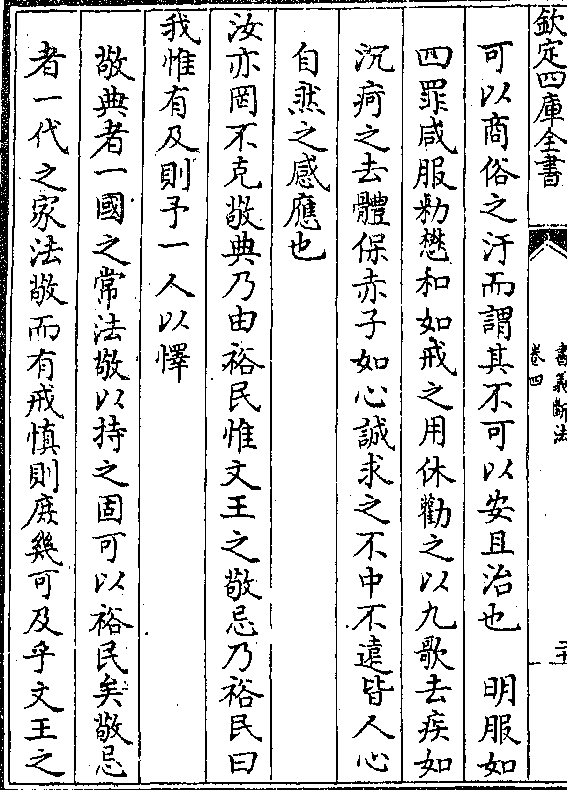 欽定四庫全書
書義斷法
卷四
二十
可以商俗之汙而謂其不可以安且治也　明服如
四罪咸服勑懋和如戒之用休勸之以九歌去疾如
沉疴之去體保赤子如心誠求之不中不遠皆人心
自然之感應也
汝亦罔不克敬典乃由裕民惟文王之敬忌乃裕民曰
我惟有及則予一人以懌
敬典者一國之常法敬以持之固可以裕民矣敬忌
者一代之家法敬而有戒慎則庶幾可及乎文王之